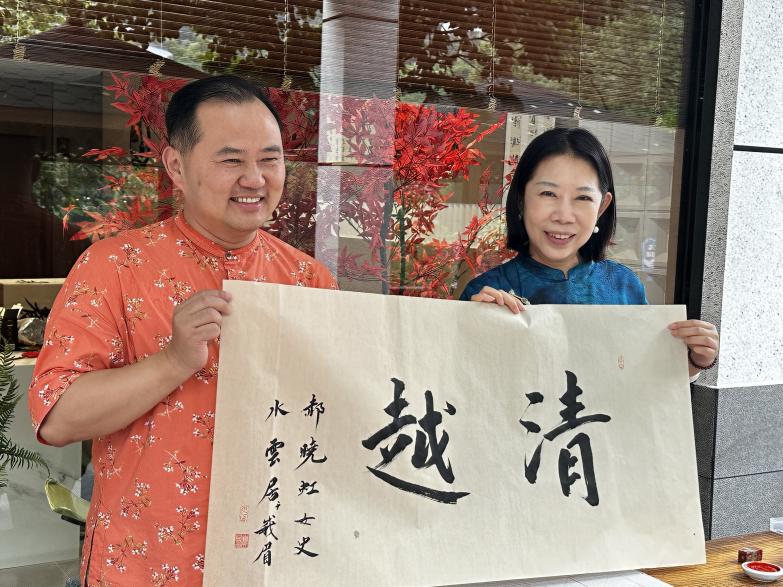 清越
郝曉虹女史
水雲居峨眉